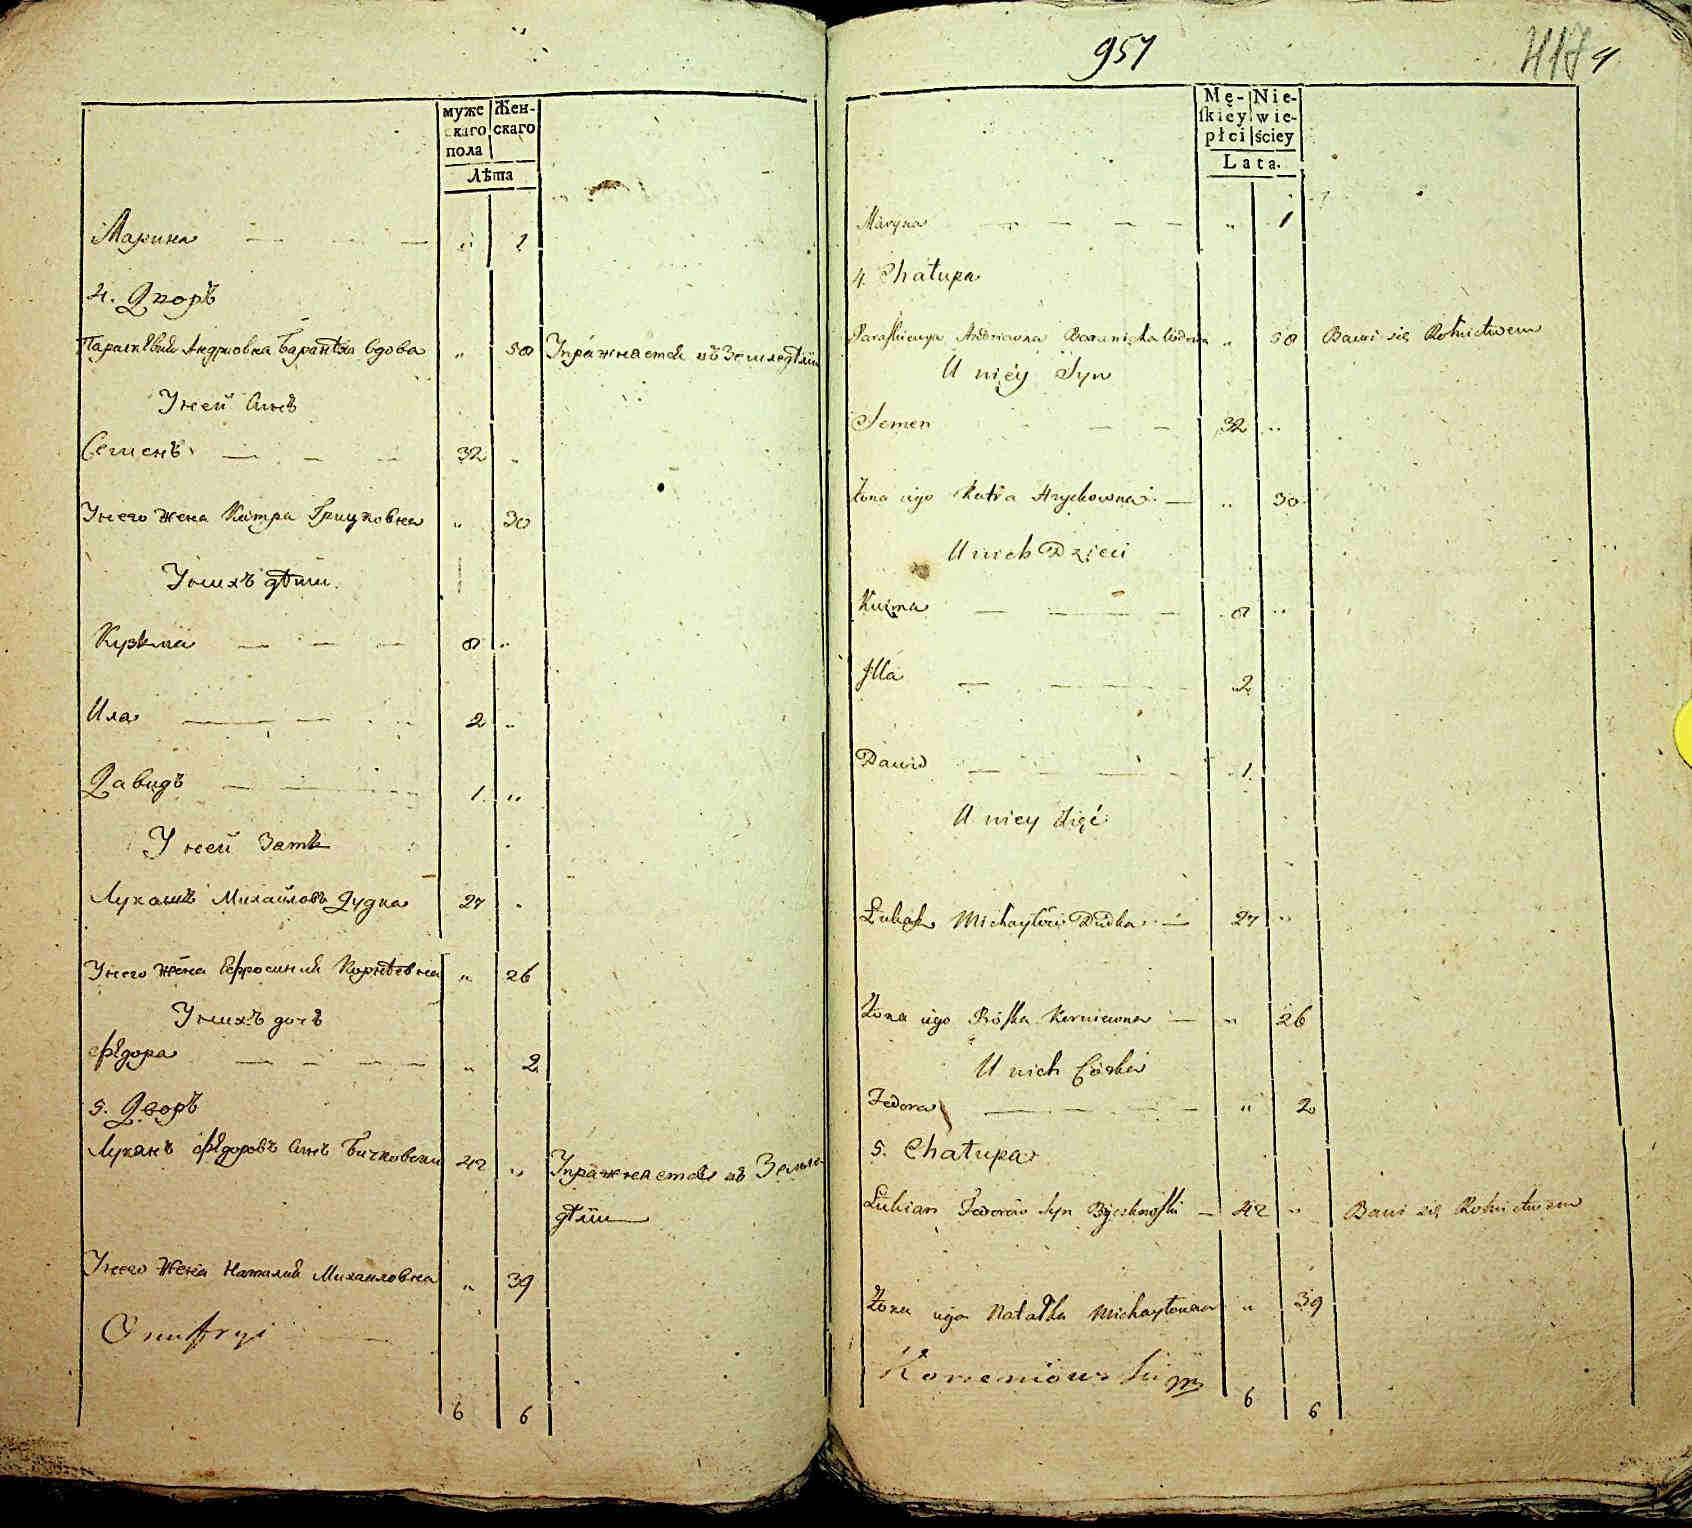 муже
скаго
пола
Жен-
скаго
Лѣта
Марина " 1
4. Дворъ
Параскѣвия Андриовна вдова " 58 Упражнается въ Земледѣлiи
У ней Сынъ
Семенъ 32 "
У него жена Катра Грицковна " 30
У нихъ дѣти
Кузьма 8 "
Ила 2 "
Давидъ 1 "
У ней Зять
Лукашъ Михайловъ Дудка 27 "
У него жена Евфросиния Корнѣевна " 26
У нихъ дочь
Ѳедора " 2
5. Дворъ
Лукянъ Ѳедоровъ Сынъ Бичковски 42 " Упражнается въ Земле
дѣлiи
У него жена Наталия Михаиловна " 39
Onufryi
6 6
957
417 9
Mę-
skiey
płci
Nie-
wie-
ściey
Lata.
Maryna " 1
4. Chałupa
Paraskiewya Andriowna Wdowa " 58 Bawi się Rolnictwem
U niey Syn
Semen 32 "
Żona iego Katra Hryckowna " 30
U nich Dzieci
Kuzma 8 "
Illa 2
Dawid 1
U niey Zięć
Łukasz Michayłów Dudka 27 "
Żona iego Próska Kerniewna " 26
U nich Córka
Fedora " 2
5. Chałupa
Łukian Fedorów Syn Byczkowski 42 " Bawi się Rolnictwem
Żona iego Natalka Michayłowna " 39
6 6